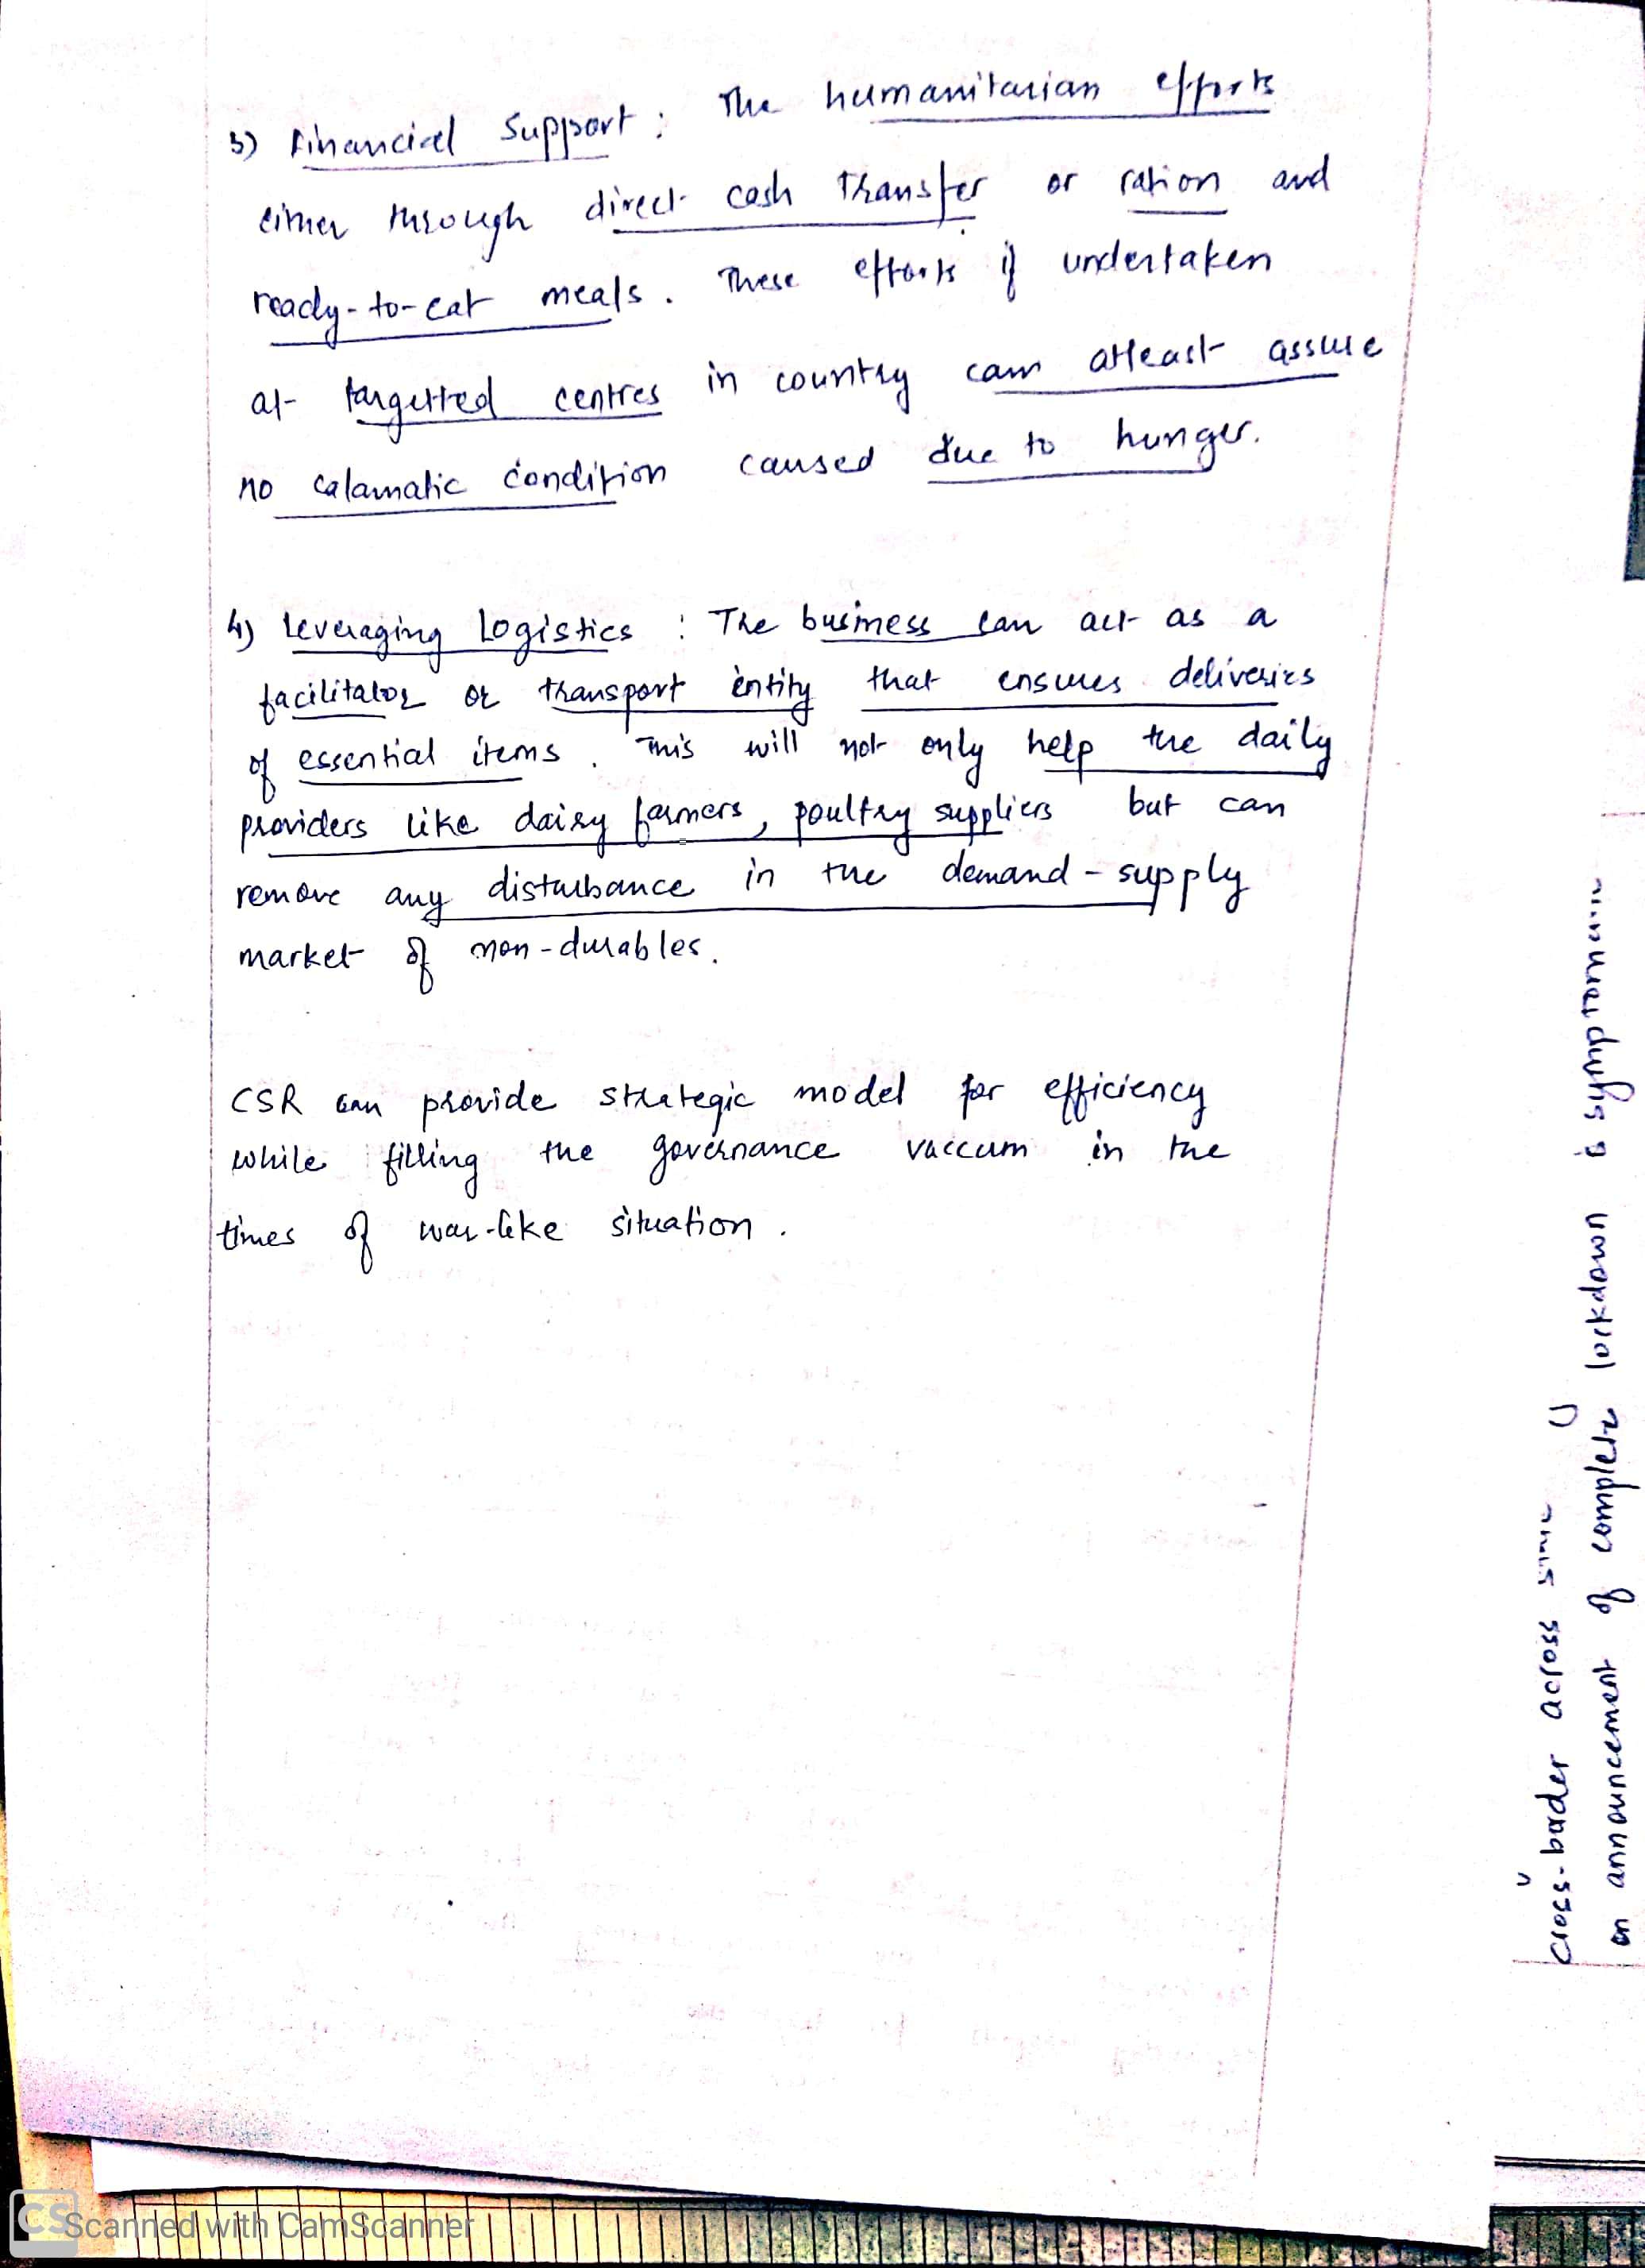 3) Financial Support : The humanitarian efforts
either through direct cash transfer or ration and
ready-to-eat meals. These efforts if undertaken
at targetted centres in country can atleast assure
no calamatic condition caused due to hunger.
4) Leveraging Logistics : The business can act as a
facilitator or transport entity that ensures deliveries
of essential items. This will not only help the daily
providers like dairy farmers, poultry suppliers but can
remove any disturbance in the demand - supply
market of non-durables.
CSR can provide strategic model for efficiency
while filling the governance vaccum in the
times of war-like situation.
cross-border across
on announcement of complete lockdown is
CS Scanned with CamScanner